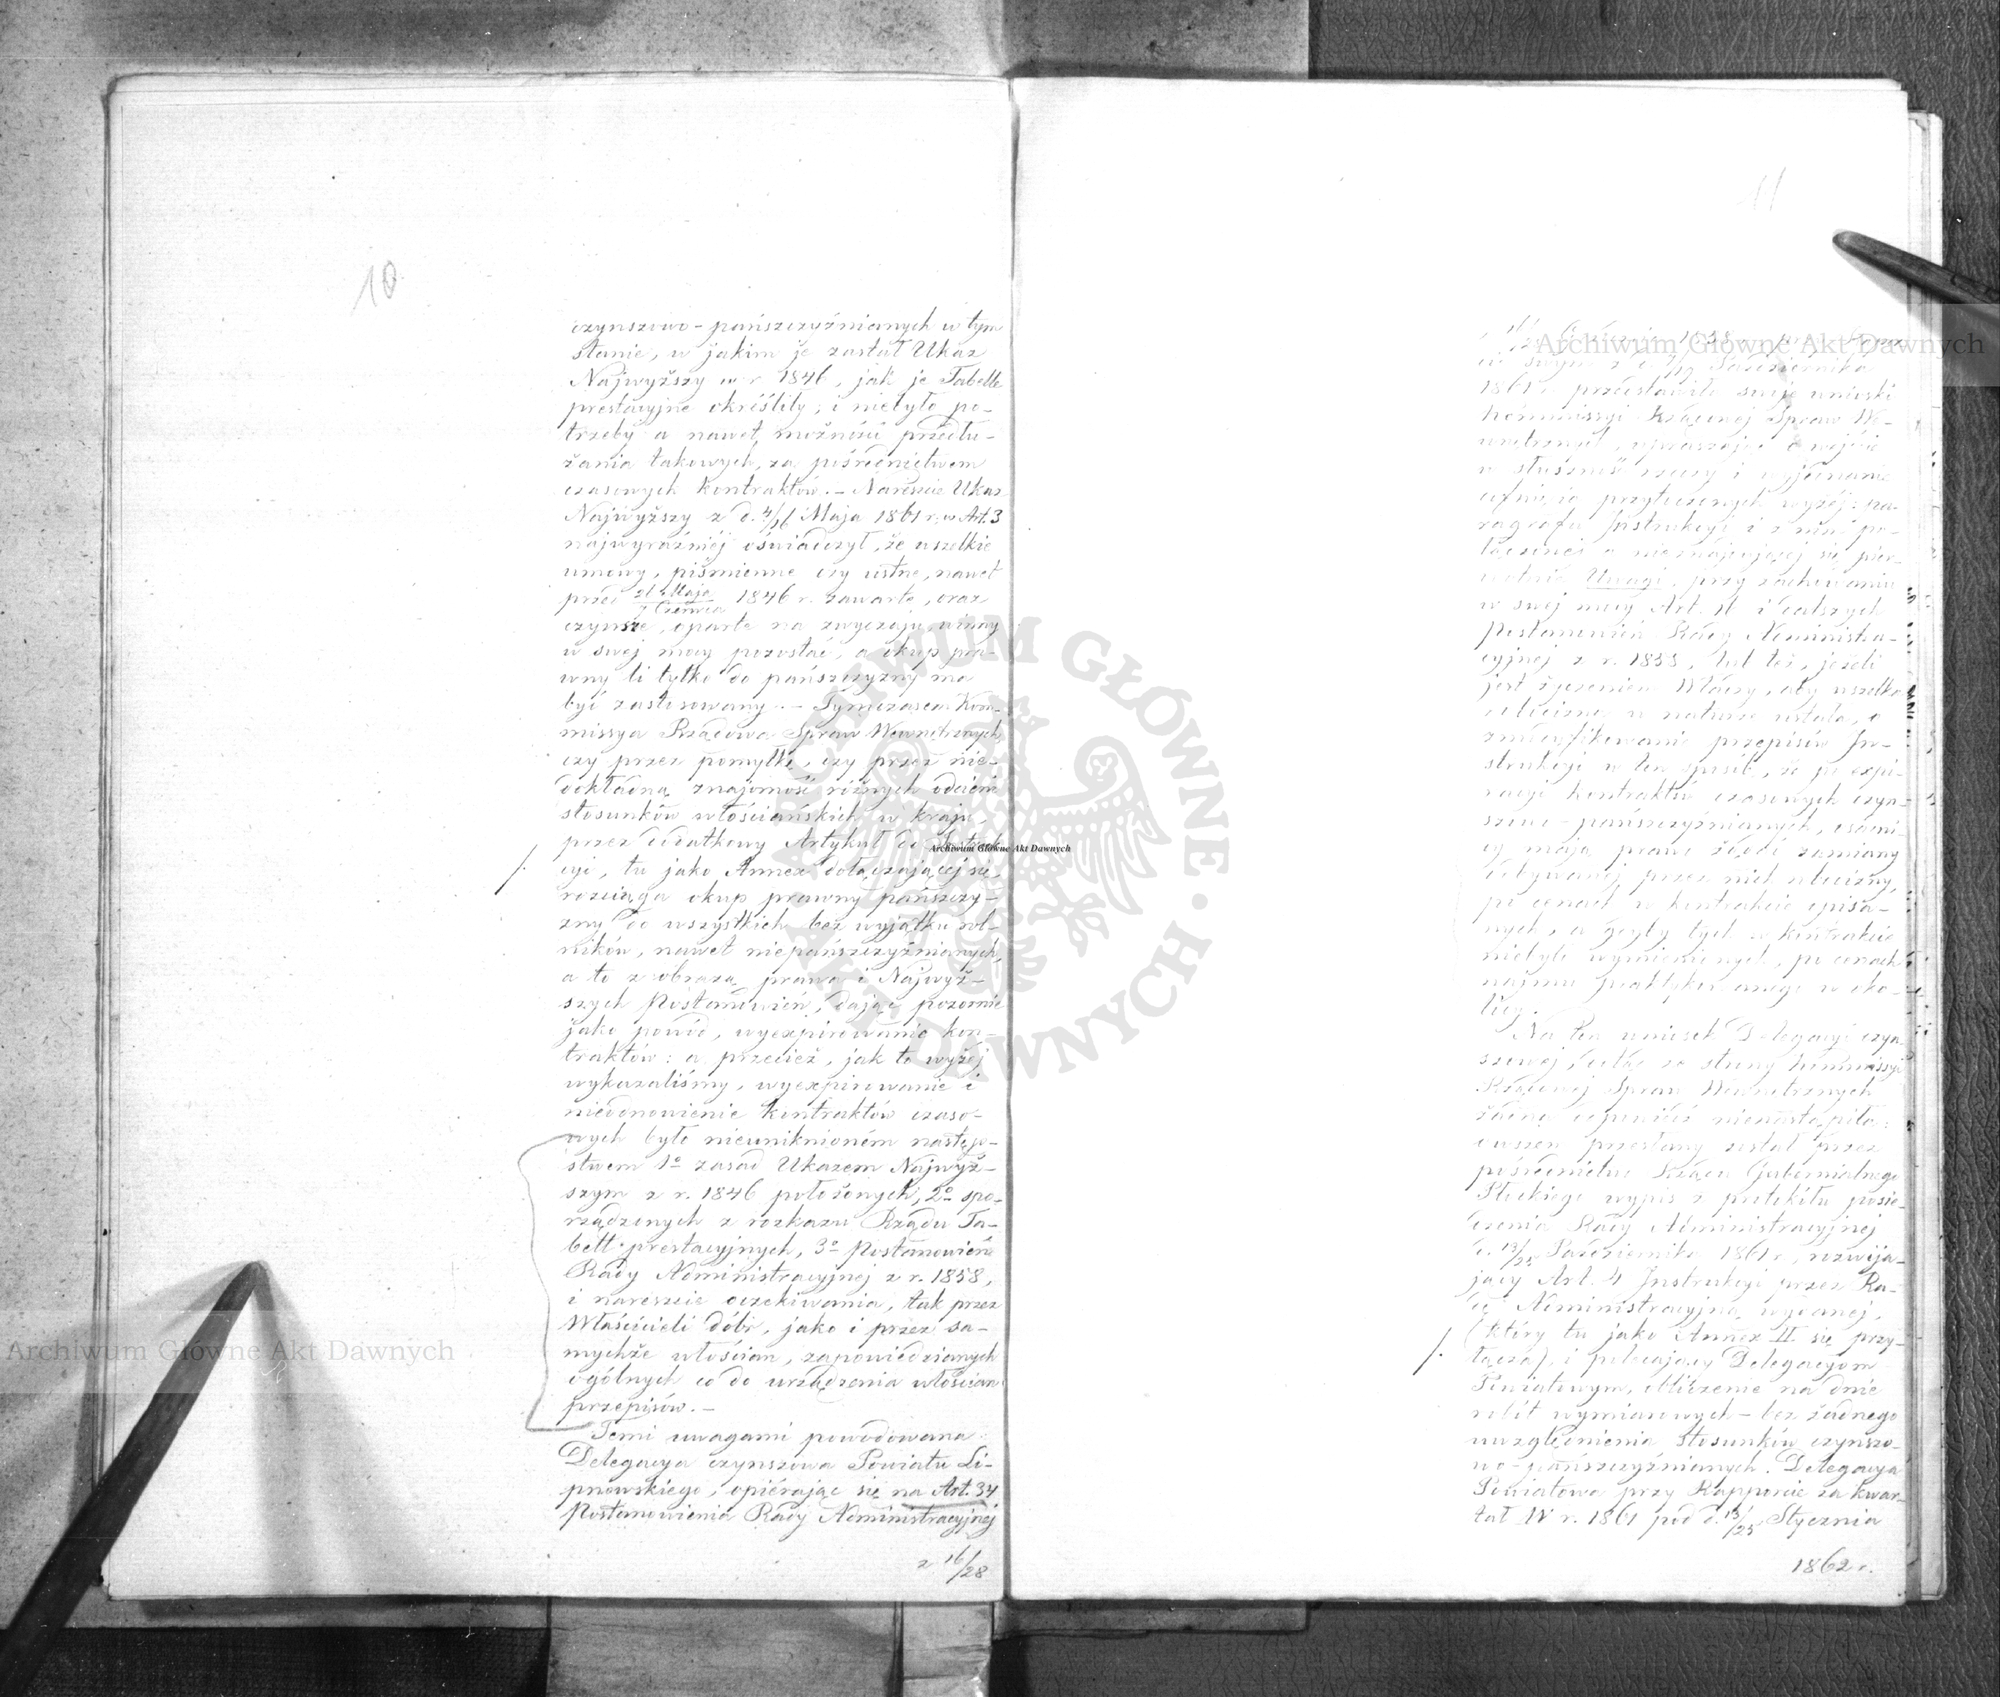 10
czynszowo-pańszczyźnianych w tym
stanie, w jakim je zastał Ukaz
Najwyższy w r. 1846, jak je Tabelle
prestacyjne okréśliły; i niebyło po-
trzeby a nawet możności przedłu-
żania takowych, za pośrednictwem
czasowych kontraktów. – Nareszcie Ukaz
Najwyższy z d. 4/16 Maja 1861 r. w Art. 3
najwyraźniéj oświadczył, że wszelkie
umowy, piśmienne czy ustne, nawet
przed 26 Maja/7 Czerwca 1846 r. zawarte, oraz
czynsze, oparte na zwyczaju, winny
w swéj mocy pozostać, a okup pra-
wny li tylko do pańszczyzny ma
być zastosowany. – Tymczasem Kom-
missya Rządowa Spraw Wewnętrznych,
czy przez pomyłkę, czy przez nie-
dokładną znajomość różnych odcieni
stosunków włościańskich w kraju,
przez dodatkowy Artykuł do Instruk-
cyi, tu jako Annex dołączającéj się,
rozciąga okup prawny pańszczy-
zny do wszystkich bez wyjątku rol-
ników, nawet niepańszczyźnianych,
a to z obrazą prawa i Najwyż-
szych Postanowień, dając pozornie
jako powód, wyexpirowanie kon-
traktów: a przecież, jak to wyżéj
wykazaliśmy, wyexpirowanie i
nieodnowienie kontraktów czaso-
wych było nieuniknioném następ-
stwem 1º zasad Ukazem Najwyż-
szym z r. 1846 położonych, 2º spo-
rządzonych z rozkazu Rządu Ta-
bell prestacyjnych, 3º Postanowień
Rady Administracyjnéj z r. 1858,
i nareszcie oczekiwania, tak przez
Właścicieli dóbr, jako i przez sa-
mychże włościan, zapowiedzianych
ogólnych co do urządzenia włościan
przepisów. –
Temi uwagami powodowana
Delegacya czynszowa Powiatu Li-
pnowskiego, opiérając się na Art. 34
Postanowienia Rady Administracyjnéj
z 16/28
11
1861 r. przedstawiła swoje wnioski
Kommissyi Rządowéj Spraw We-
wnętrznych, upraszając o wejście
w słuszność rzeczy i wyjednanie
cofnięcia przytoczonych wyżéj pa-
ragrafu Instrukcyi i z nim po-
łączonéj a nieznajdującéj się pier-
wotnie Uwagi, przy zachowaniu
w swéj mocy Art. 11 i dalszych
Postanowień Rady Administra-
cyjnéj z r. 1858, lub też, jeżeli
jest życzeniem Władzy, aby wszelka
robocizna w naturze ustała, o
zmodyfikowanie przepisów In-
strukcyi w ten sposób, że po expi-
racyi kontraktów czasowych czyn-
szowo-pańszczyźnianych, osadni-
cy mają prawo żądać zamiany
odbywanéj przez nich robocizny,
po cenach w kontrakcie opisa-
nych, a gdyby tych w kontrakcie
niebyło wymienionych, po cenach
najmu praktykowanego w oko-
licy.
Na ten wniosek Delegacyi czyn-
szowéj, dotąd ze strony Kommissyi
Rządowéj Spraw Wewnętrznych
żadna odpowiédź nienastąpiła:
owszem przesłany został przez
pośrednictwo Rządu Gubernialnego
Płockiego wypis z protokółu posie-
dzenia Rady Administracyjnéj
d. 13/25 Października 1861 r., rozwija-
jący Art. 4 Instrukcyi przez Ra-
dę Administracyjną wydanéj,
(który tu jako Annex II się przy-
łącza), i polecający Delegacyom
Powiatowym, obliczenie na dnie
robót wymiarowych – bez żadnego
uwzględnienia stosunków czynszo-
wo-pańszczyźnianych. Delegacya
Powiatowa przy Rapporcie za kwar-
tał IV r. 1861 pod d. 13/25 Stycznia
1862 r.
Archiwum Główne Akt Dawnych
Archiwum Główne Akt Dawnych
Archiwum Główne Akt Dawnych
ARCHIWUM GŁÓWNE AKT DAWNYCH